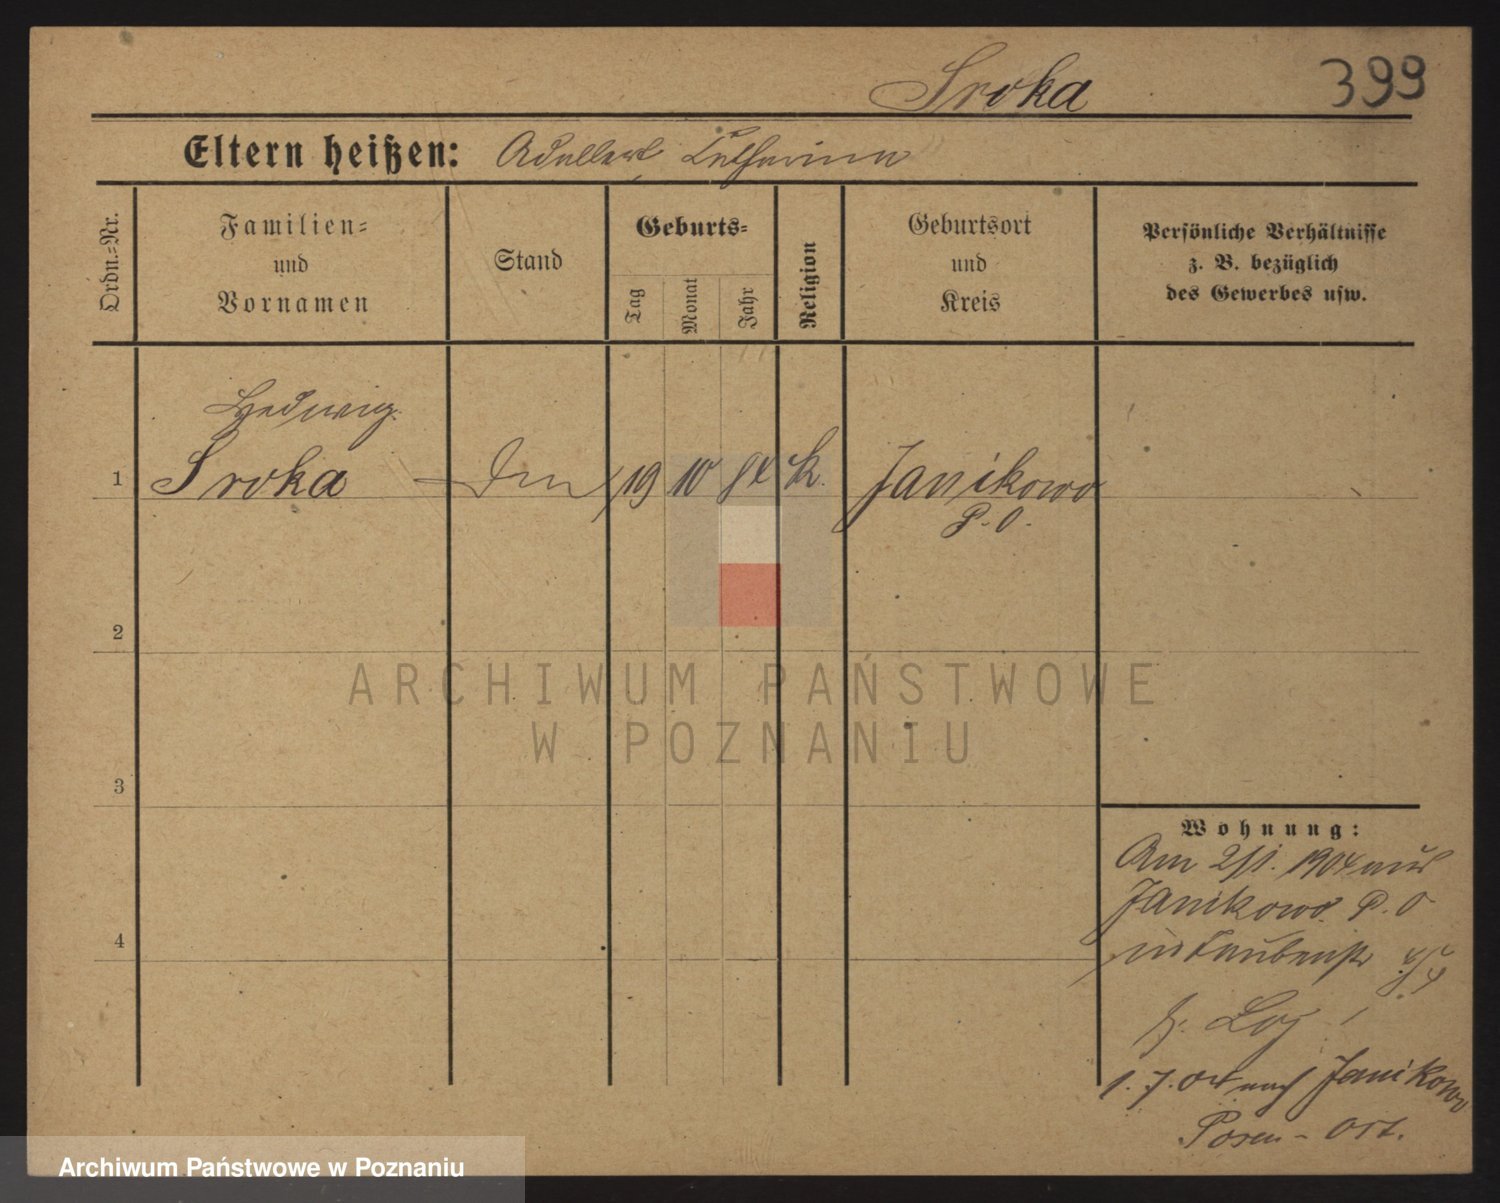 Sroka 399
Eltern heißen: Adalbert Catharina
Ordn.-Nr.
Familien-
und
Vornamen
Stand
Geburts-
Tag
Monat
Jahr
Religion
Geburtsort
und
Kreis
Persönliche Verhältnisse
z. B. bezüglich
des Gewerbes usw.
Hedwig
1 Sroka 19 10 84 k. Janikowo
P. O.
2
3
4
ARCHIWUM PAŃSTWOWE
W POZNANIU
Wohnung:
Am 2/1. 1904 aus
Janikowo P. O
in Taubenstr
1. 7. 04 nach Janikowo
Posen - Ost.
Archiwum Państwowe w Poznaniu